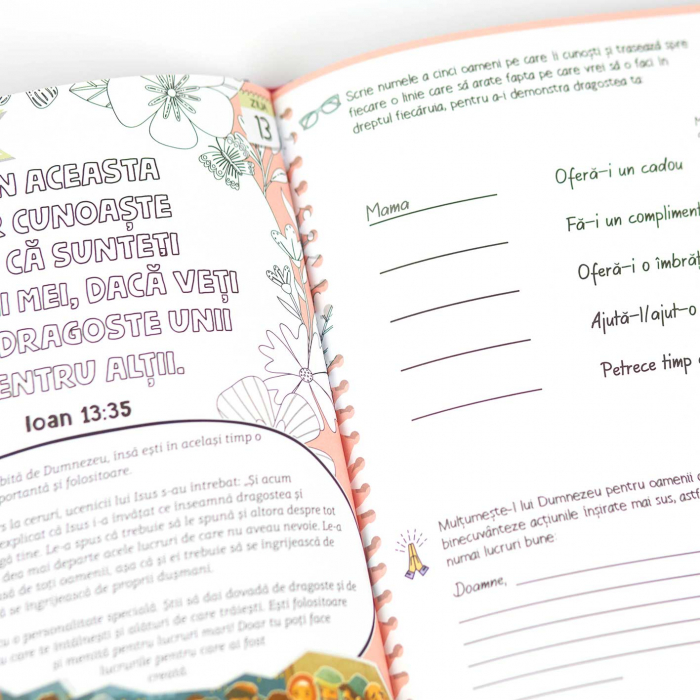 N ACEASTA
R CUNOAȘTE
CĂ SUNTEȚI
I MEI, DACĂ VEȚI
DRAGOSTE UNII
ENTRU ALȚII.
Ioan 13:35
bită de Dumnezeu, însă ești în același timp o
portantă și folositoare.
s la ceruri, ucenicii lui Isus s-au întrebat: „Și acum
explicat că Isus i-a învățat ce înseamnă dragostea și
gă tine. Le-a spus că trebuie să le spună și altora despre tot
dea mai departe acele lucruri de care nu aveau nevoie. Le-a
să de toți oamenii, așa că și ei trebuie să se îngrijească de
ă se îngrijească de proprii dușmani.
o personalitate specială. Știi să dai dovadă de dragoste și de
care se întâlnești și alături de care trăiești. Ești folositoare
și menită pentru lucruri mari! Doar tu poți face
lucrurile pentru care ai fost
creată
ZIUA
13
Scrie numele a cinci oameni pe care îi cunoști și trasează spre
fiecare o linie care să arate fapta pe care vrei să o faci în
dreptul fiecăruia, pentru a-i demonstra dragostea ta.
Mama
Oferă-i un cadou
Fă-i un compliment
Oferă-i o îmbrăț
Ajută-l/ajut-o
Petrece timp
Mulțumește-I lui Dumnezeu pentru oamenii
binecuvânteze acțiunile înșirate mai sus, astf
numai lucruri bune:
Doamne,